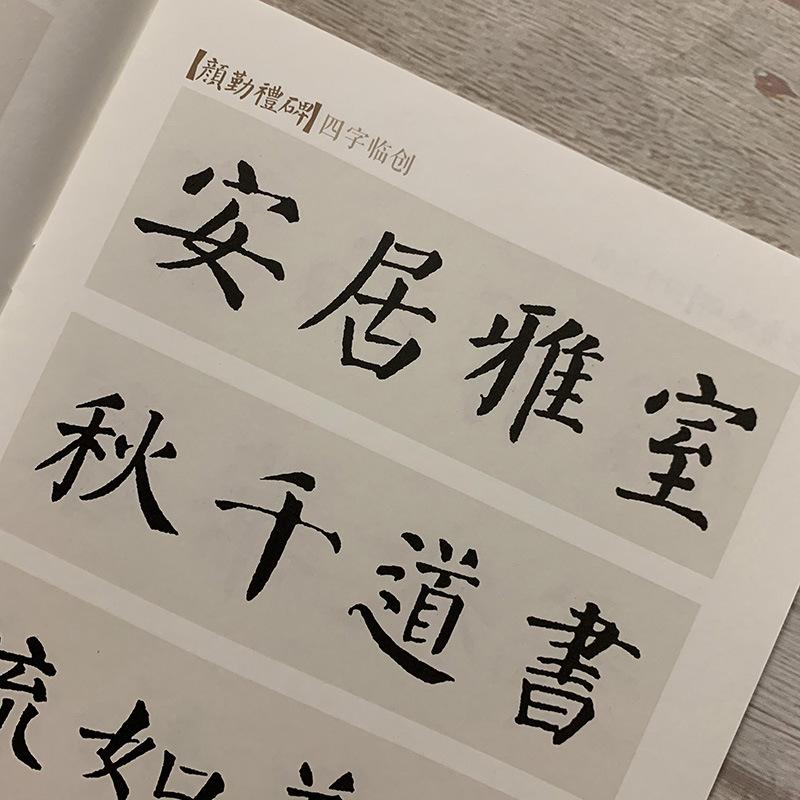 【顔勤禮碑】四字临创
安居雅室
秋千道書
流如